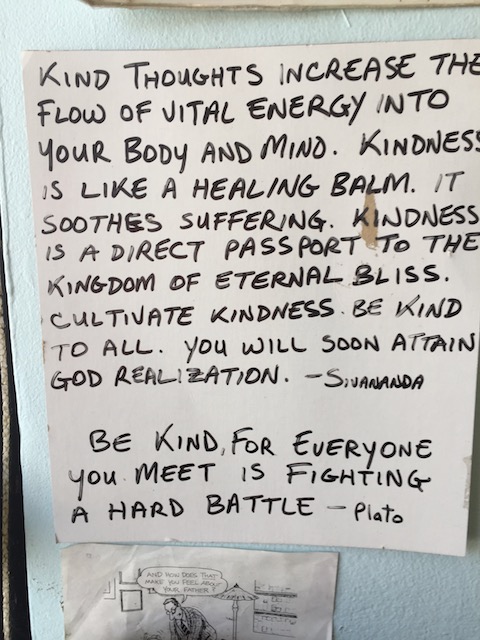 KIND THOUGHTS INCREASE THE
FLOW OF VITAL ENERGY INTO
YOUR BODY AND MIND. KINDNESS
IS LIKE A HEALING BALM. IT
SOOTHES SUFFERING. KINDNESS
IS A DIRECT PASSPORT TO THE
KINGDOM OF ETERNAL BLISS.
CULTIVATE KINDNESS. BE KIND
TO ALL. YOU WILL SOON ATTAIN
GOD REALIZATION. - SIVANANDA
BE KIND, FOR EVERYONE
YOU MEET IS FIGHTING
A HARD BATTLE - Plato
AND HOW DOES THAT
MAKE YOU FEEL ABOUT
YOUR FATHER?